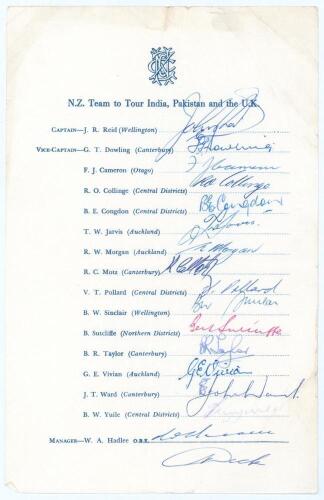 N.Z. Team to Tour India, Pakistan and the U.K.
CAPTAIN—J. R. Reid (Wellington)
VICE-CAPTAIN—G. T. Dowling (Canterbury)
F. J. Cameron (Otago)
R. O. Collinge (Central Districts) R O Collinge
B. E. Congdon (Central Districts) B E Congdon
T. W. Jarvis (Auckland)
R. W. Morgan (Auckland) R Morgan
R. C. Motz (Canterbury) R C Motz
V. T. Pollard (Central Districts) V. Pollard
B. W. Sinclair (Wellington)
B. Sutcliffe (Northern Districts) Bert Sutcliffe
B. R. Taylor (Canterbury) B R Taylor
G. E. Vivian (Auckland) G E Vivian
J. T. Ward (Canterbury) John Ward
B. W. Yuile (Central District)
MANAGER—W. A. Hadlee O.B.E.